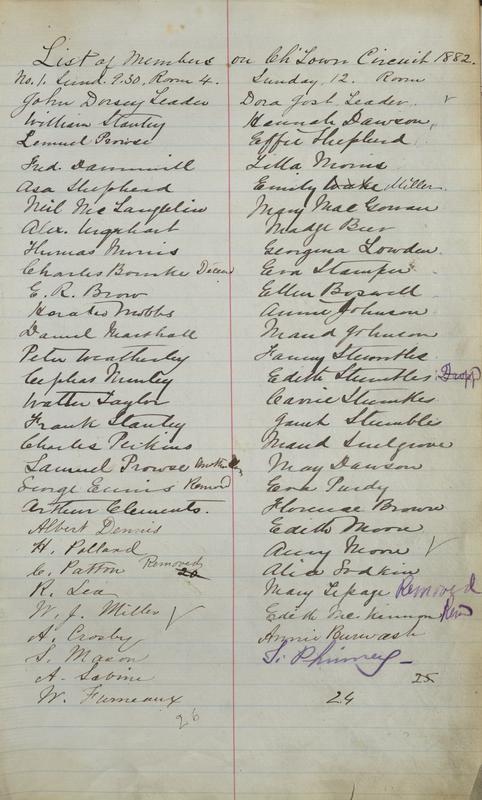 List of Members on Ch'Town Circuit 1882.
No. 1. Sund. 9.30, Room 4.
John Dorsey Leader
William Stanley
Lemuel Prowse
Fred.
Asa Shepherd
Neil McLaughlin
Alex. Urquhart
Thomas Morris
Charles Bourke
E. R. Brow
Horatio Mobbs
Daniel Marshall
Peter Weatherley
Cephas Nunley
Walter Taylor
Frank Stanley
Charles Perkins
Samuel Prowse
George Ennis Remov
Arthur Clements.
Albert Dennis
H. Pollard
C. Patton Removed
20
R. Lea
W. J. Miller √
A. Crosby
S. Mason
A. Sabine
W. Furneaux
26
Sunday, 12. Room
Dora Jost Leader. √
Hannah Dawson
Effie Shepherd
Lilla Morris
Emily Miller
Mary MacGowan
Madge Beer
Georgina Lowden
Eva Stamper
Ellen Boswell
Annie Johnson
Maud Johnson
Fanny Stumbles
Edith Stumbles Dropp
Carrie Stumbles
Stumbles
Maud Snelgrove
May Dawson
Eva Purdy
Florence Brown
Edith Moore
Anny Moore √
Alice Sodkin
Mary Lepage Removed
Edith McKinnon Rem
Annie Burwash
S. Phinney
25
24